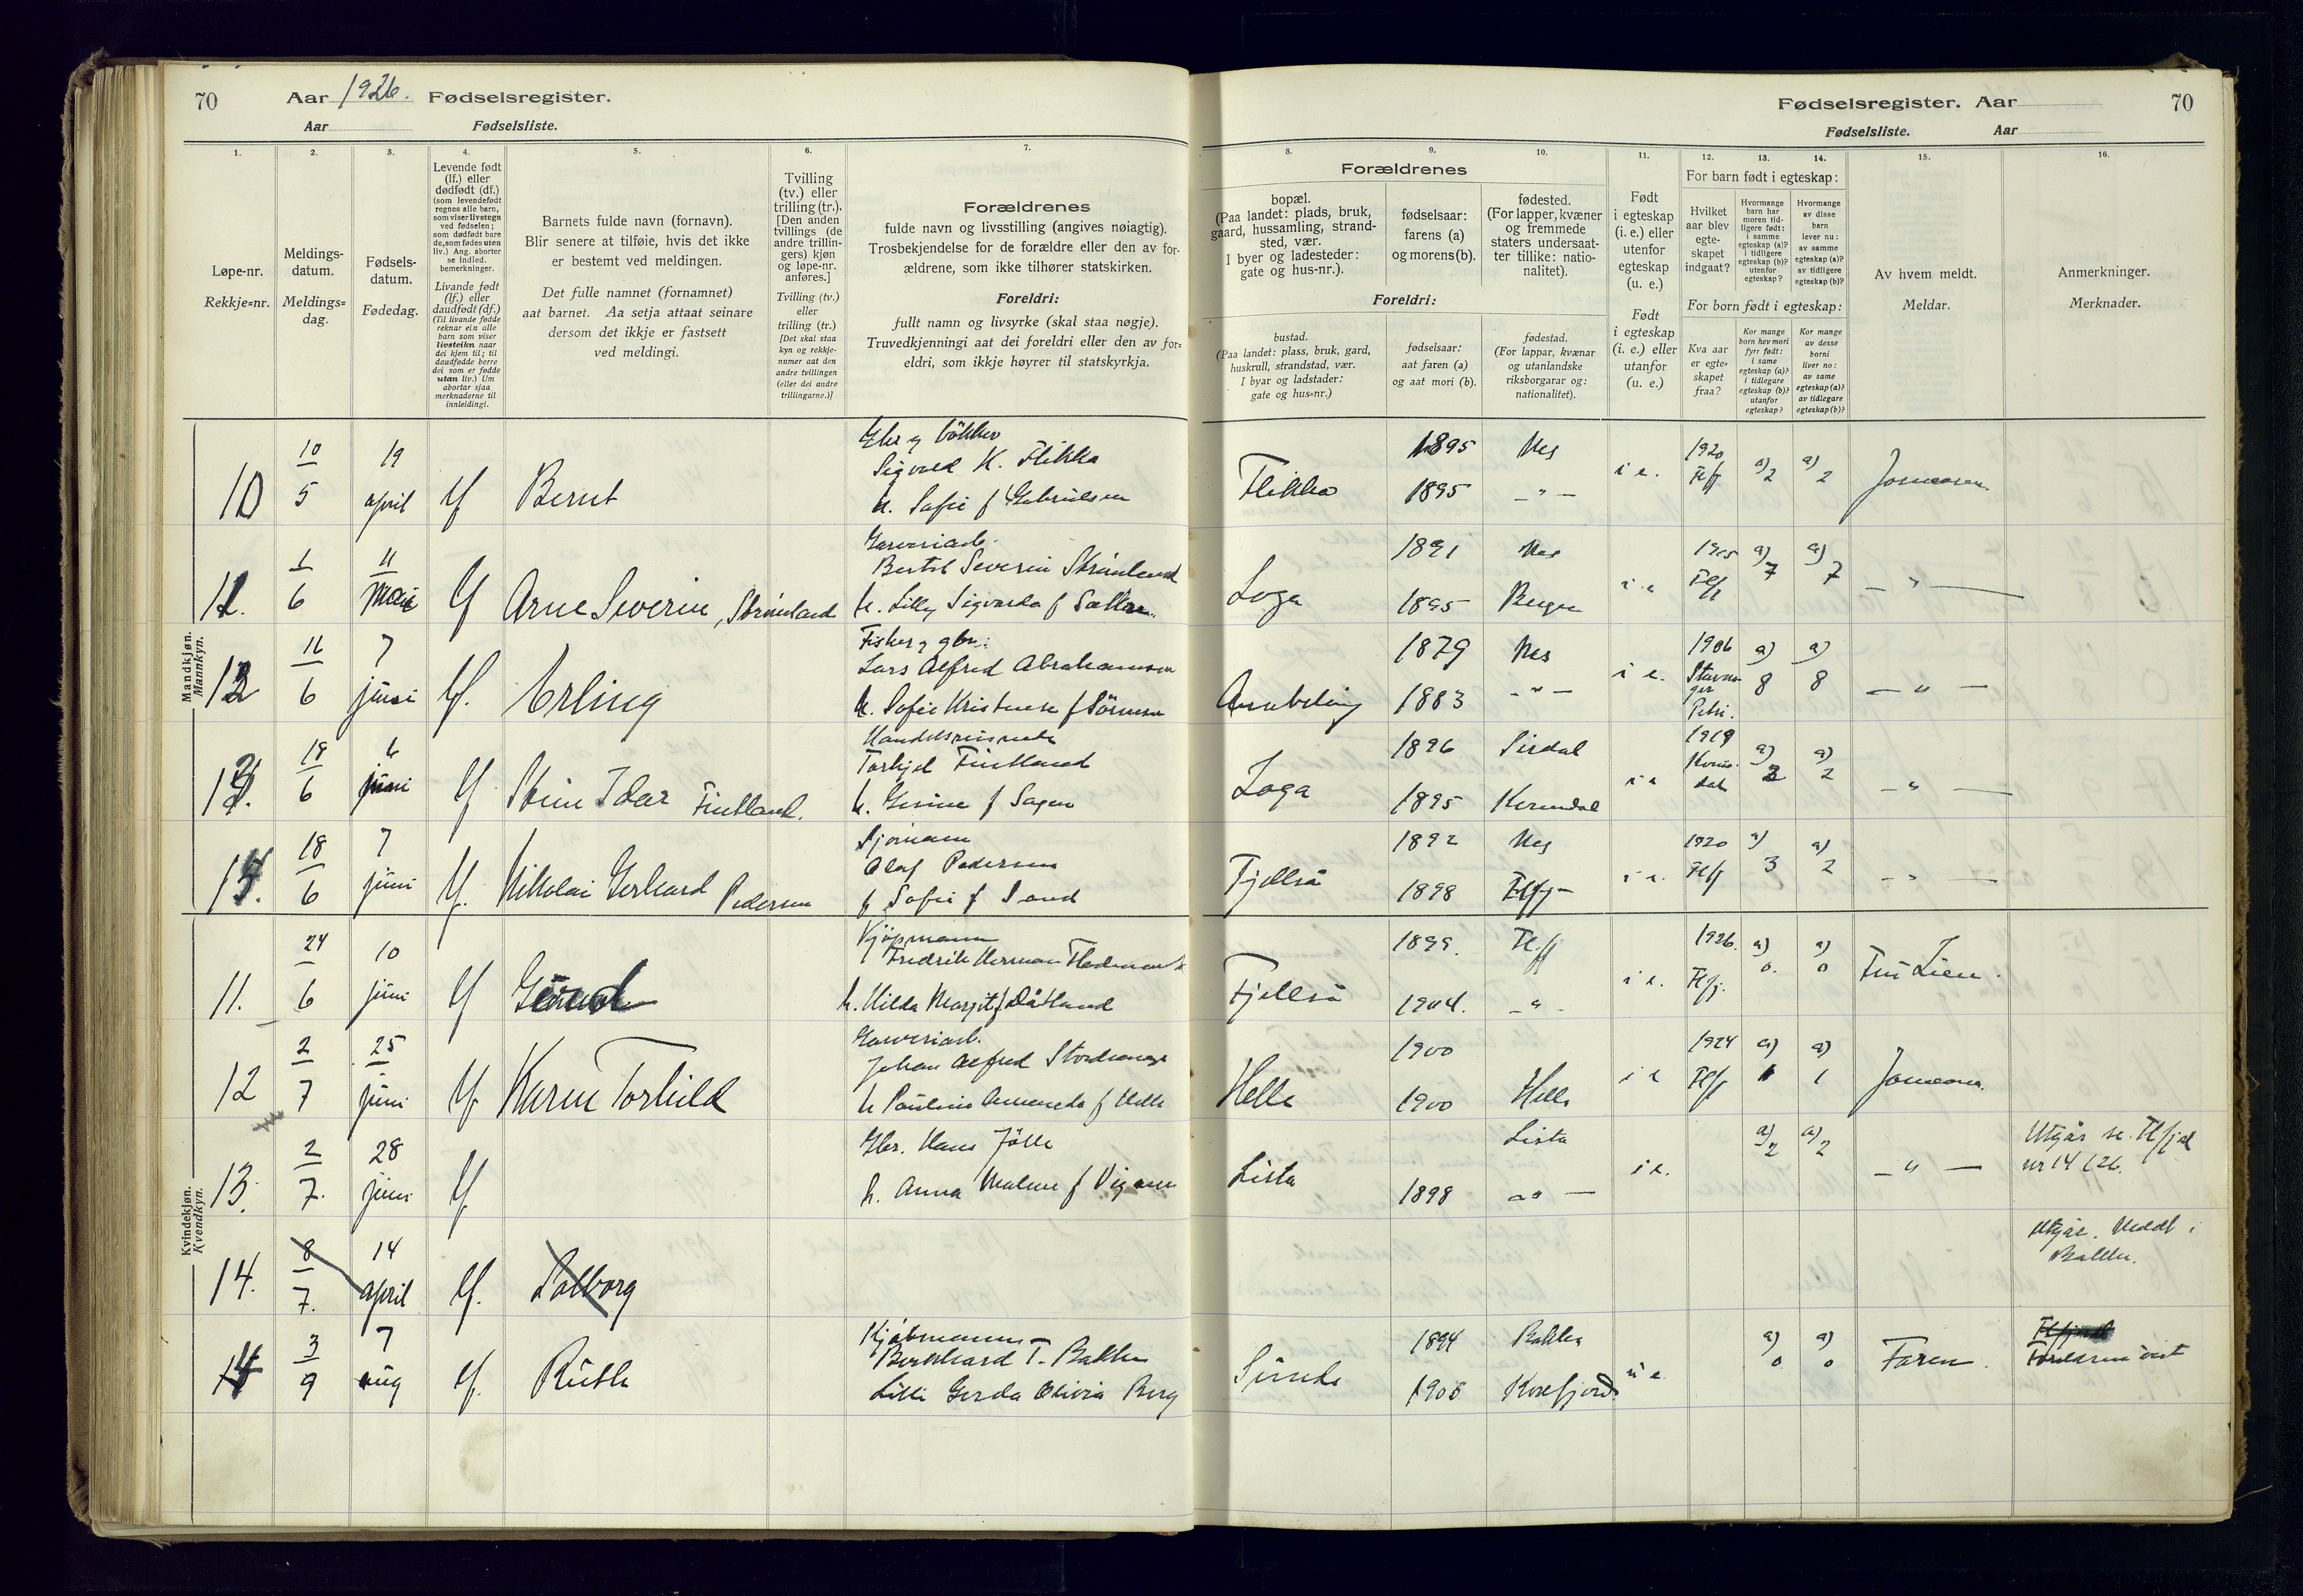 70
Aar 1926. Fødselsregister.
Aar Fødselsliste.
Fødselsregister. Aar
70
Fødselsliste. Aar
1.
Løpe-nr.
Rekkje=nr.
2.
Meldings-
datum.
Meldings=
dag.
3.
Fødsels-
datum.
Fødedag.
4.
Levende født
(lf.) eller
dødfødt (df.)
(som levendefødt
regnes alle barn,
som viser livstegn
ved fødselen;
som dødfødt bare
de, som fødes uten
liv.) Ang. aborter
se indled.
bemerkninger.
Livande fødd
(lf.) eller
daudfødt (df.)
(Til livande fødde
reknar ein alle
barn som viser
livsteikn naar
dei kjem til; til
daudfødde berre
dei som er fødde
utan liv.) Um
abortar sjaa
merknaderne til
innleidingi.
5.
Barnets fulde navn (fornavn).
Blir senere at tilføie, hvis det ikke
er bestemt ved meldingen.
Det fulle namnet (fornamnet)
aat barnet. Aa setja attaat seinare
dersom det ikkje er fastsett
ved meldingi.
6.
Tvilling
(tv.) eller
trilling (tr.).
[Den anden
tvillings (de
andre trillin-
gers) kjøn
og løpe-nr.
anføres.]
Tvilling (tv.)
eller
trilling (tr.)
[Det skal staa
kyn og rekkje-
numer aat den
andre tvillingen
(eller dei andre
trillingarne.)]
7.
Forældrenes
fulde navn og livsstilling (angives nøiagtig).
Trosbekjendelse for de forældre eller den av for-
ældrene, som ikke tilhører statskirken.
Foreldri:
fullt namn og livsyrke (skal staa nøgje).
Truvedkjenningi aat dei foreldri eller den av for=
eldri, som ikkje høyrer til statskyrkja.
8.
Forældrenes
bopæl.
(Paa landet: plads, bruk,
gaard, hussamling, strand-
sted, vær.
I byer og ladesteder:
gate og hus-nr.).
Foreldri:
bustad.
(Paa landet: plass, bruk, gard,
huskrull, strandstad, vær.
I byar og ladstader:
gate og hus=nr.)
9.
fødselsaar:
farens (a)
og morens (b).
fødselsaar:
aat faren (a)
og aat mori (b).
10.
fødested.
(For lapper, kvæner
og fremmede
staters undersaat-
ter tillike: natio-
nalitet).
fødestad.
(For lappar, kvænar
og utanlandske
riksborgarar og:
nationalitet).
11.
Født
i egteskap
(i. e.) eller
utenfor
egteskap
(u. e.)
Født
i egteskap
(i. e.) eller
utanfor
(u. e.)
12. 13. 14.
For barn født i egteskap:
Hvilket
aar blev
egte-
skapet
indgaat?
Hvormange
barn har
moren tid-
ligere født:
i samme
egteskap (a)?
i tidligere
egteskap (b)?
utenfor
egteskap?
Hvormange
av disse
barn
lever nu:
av samme
egteskap (a)?
av tidligere
egteskap (b)?
For born født i egteskap:
Kva aar
er egte-
skapet
fraa?
Kor mange
born hev mori
fyrr født:
i same
egteskap (a)?
i tidlegare
egteskap (b)?
utanfor
egteskap?
Kor mange
av desse
borni
liver no:
av same
egteskap (a)?
av tidlegare
egteskap (b)?
15.
Av hvem meldt.
Meldar.
16.
Anmerkninger.
Merknader.
Mandkjøn.
Mannkyn.
10 10/5 19 april lf Bernt
Sigvald K. Flikka
h. Sofie f Gabrielsen
Flikka 1895 Nes i e. 1920 a) 2 a) 2 Jormoren
1895 — " —
1/6 11 Mai lf Arne Severin, Strømland
Garveriarb.
Bertol Severin Strømland
h. Lilly Sigvarda f
Loga 1891 Nes i e a) 7 a) 7 — " —
1895 Bergen
16/6 7 juni lf. Erling
Fisker
Lars Alfred Abrahamsen
h. Sofie Kristense f Sørensen
1879 Nes i e. 1906 a) 8 a) 8 — " —
1883 — " — Stavanger
Petri.
6 juni lf Idar Fintland.
Torkjel Fintland
h. Gesine f Sagen
Loga 1896 Sirdal i e 1919 a) 2 a) 2 — " —
1895 Kvinesdal
18/6 7 juni lf. Nikolai Gerhard Pedersen
Sjømann
Olaf Pedersen
h Sofie f Sand
Fjellså 1892 Nes i e. 1920 a) 3 a) 2 — " —
1898
Kvindekjøn.
Kvendkyn.
11. 24/6 10 juni lf
Kjøpmann
Fredrik Herman
h. Hilda Margit f Dåtland
Fjellså 1899. i e. 1926. a) 0. a) 0 Fru Lien.
1904. — " —
12 2/7 25 juni lf Karen Torhild
Garveriarb.
Johan Alfred
h Pauline Amanda f Helle
Helle 1900 i e 1924 a) 1 a) 1 Jormoren.
1900 Helle
13. 2/7. 28 juni lf
Gbr. Hans Jølle
h. Anna Malene f
Lista Lista i e. a) 2 a) 2 — " —
1898 — " —
Utgår se Flfjd
nr 14 / 26.
14. 8/7. 14 april lf. Solborg
Utgår. Meldt i
Bakke.
14 3/9 7 aug lf. Ruth
Kjøbmann
Bernhard T. Bakke
Lilli Gerda Olivia Berg
Sirnes 1894 Bakke u e a) 0 a) 0 Faren.
1905 Korsfjord